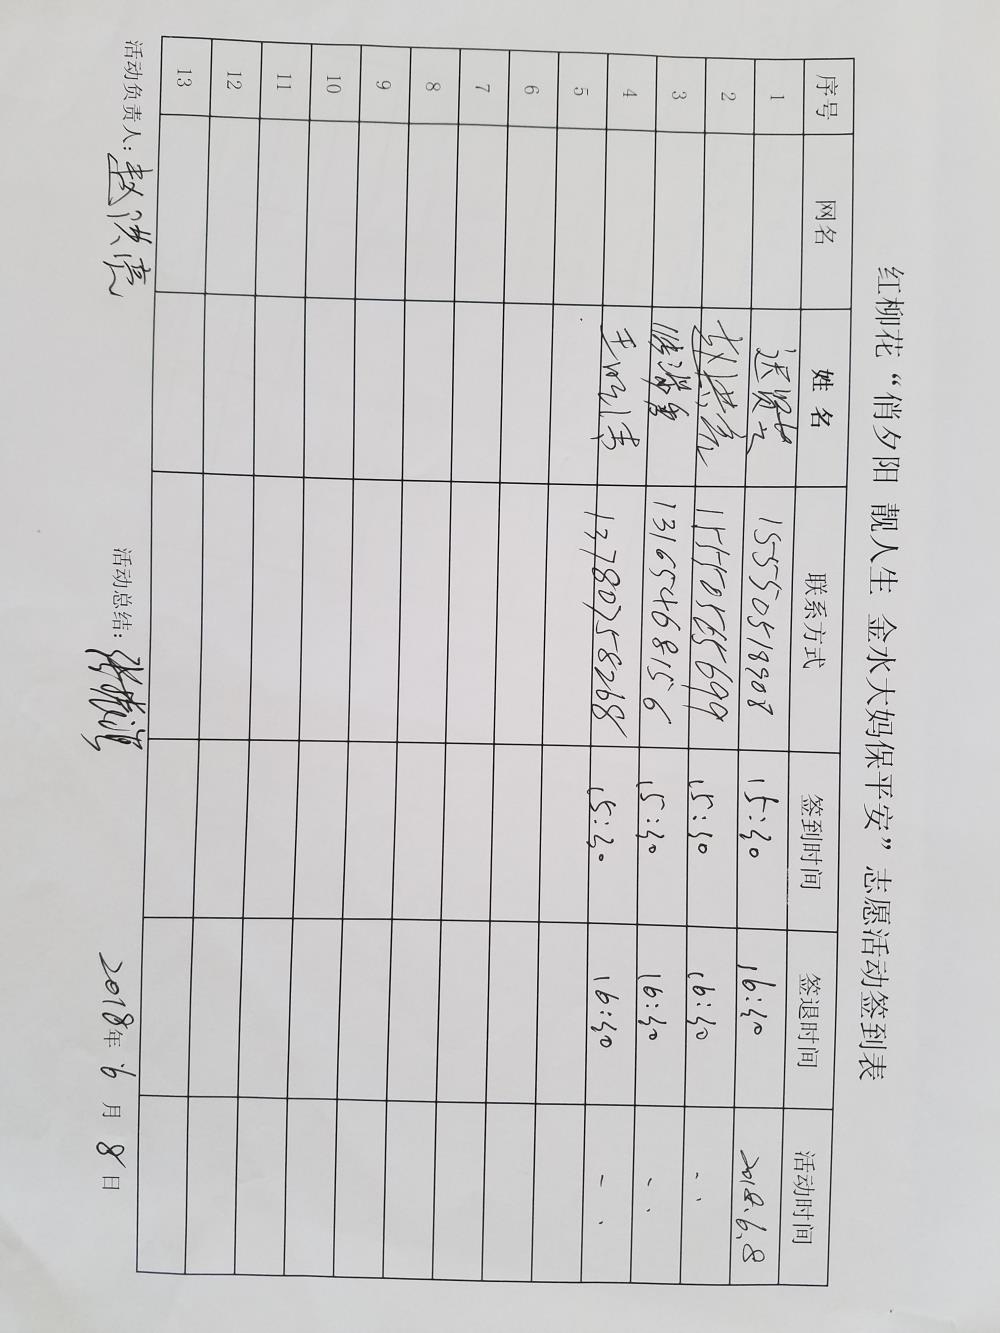 红柳花“俏夕阳 靓人生 金水大妈保平安”志愿活动签到表
序号 网名 姓名 联系方式 签到时间 签退时间 活动时间
1 15550519908 15:30 16:30 2018.6.8
2 赵洪亮 15550565699 15:30 16:30
3 13165468156 15:30 16:30
4 13780758268 15:30 16:30
5
6
7
8
9
10
11
12
13
活动负责人: 赵洪亮 活动总结: 2018年 6月 8日